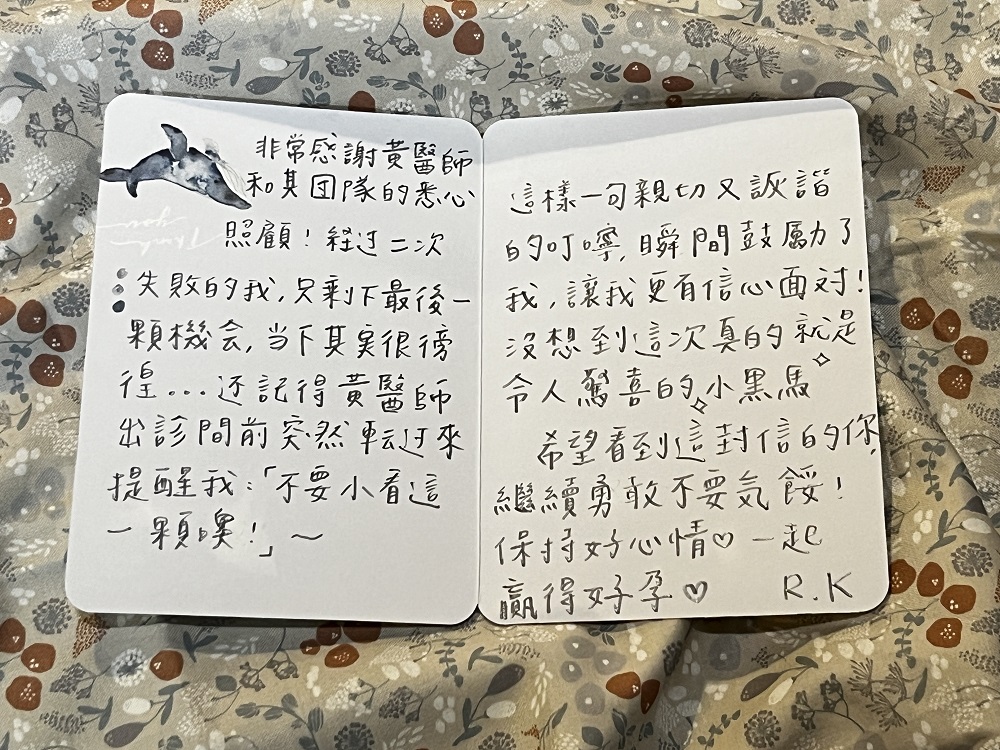 非常感謝黃醫師
和其团隊的悉心
照顧！经过二次
Thank you
失敗的我，只剩下最後一
顆機会，当下其实很徬
徨...还記得黃醫師
出診間前突然転过來
提醒我：「不要小看這
一顆噢！」～
這樣一句親切又詼諧
的叮嚀，瞬間鼓勵了
我，讓我更有信心面対！
沒想到這次真的就是
令人驚喜的小黑馬
希望看到這封信的你，
繼續勇敢不要気餒！
保持好心情♡ 一起
贏得好孕♡ R.K